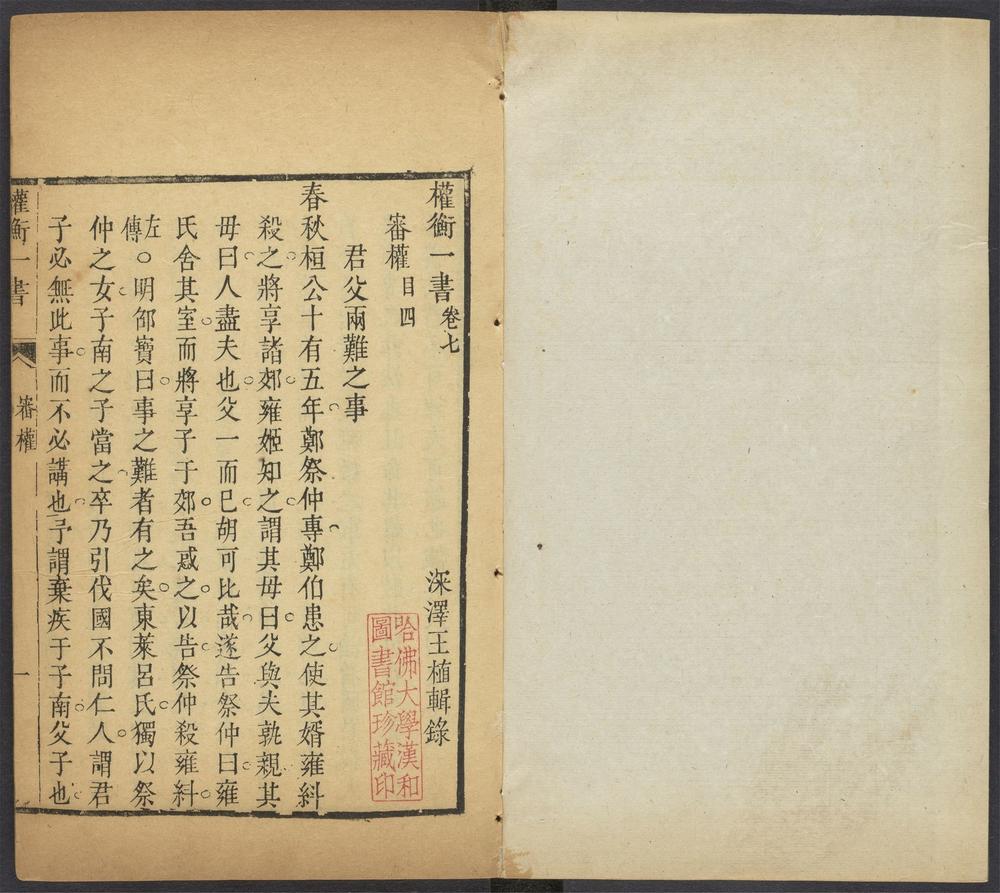 權衡一書 卷七
深澤王植輯錄
審權 目四
君父兩難之事
春秋桓公十有五年鄭祭仲專鄭伯患之使其婿雍糾
殺之將享諸郊雍姬知之謂其母曰父與夫孰親其
母曰人盡夫也父一而已胡可比哉遂告祭仲曰雍
氏舍其室而將享子于郊吾惑之以告祭仲殺雍糾
左傳○明邵寶曰事之難者有之矣東萊呂氏獨以祭
仲之女子南之子當之卒乃引伐國不問仁人謂君
子必無此事而不必講也予謂棄疾于子南父子也
權衡一書
審權
一
哈佛大學漢和
圖書館珍藏印